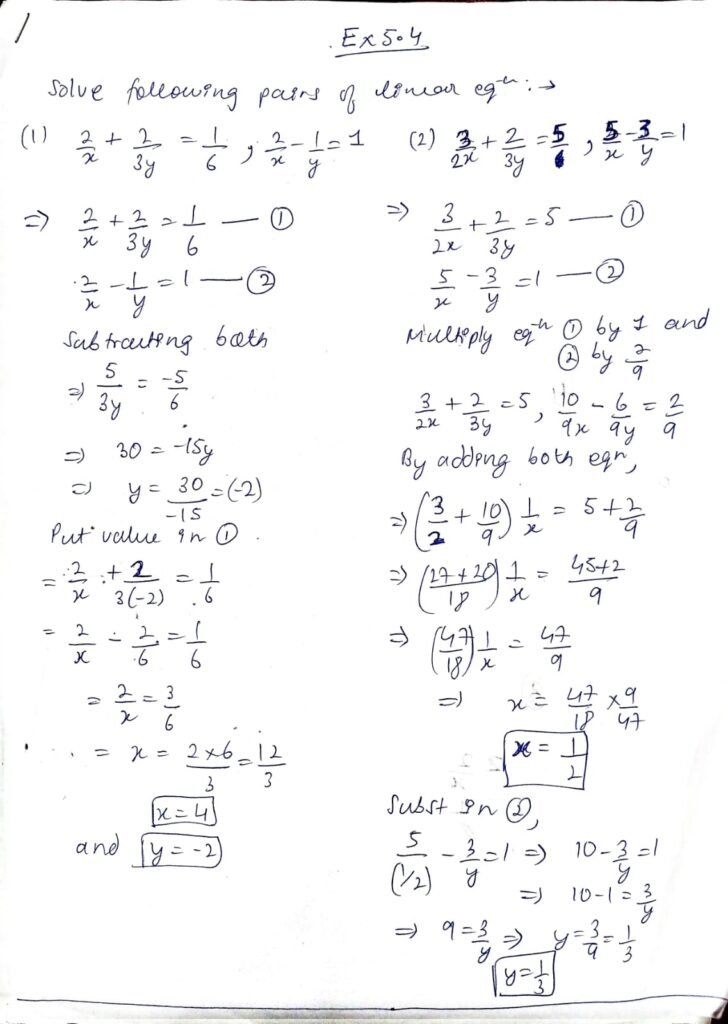 1
Ex 5.4
Solve following pairs of linear eqⁿ :→
(1) 2/x + 2/3y = 1/6 , 2/x - 1/y = 1
⇒ 2/x + 2/3y = 1/6 — ①
2/x - 1/y = 1 — ②
Subtracting both
⇒ 5/3y = -5/6
⇒ 30 = -15y
⇒ y = 30/-15 = (-2)
Put value in ① .
= 2/x + 2/3(-2) = 1/6
= 2/x - 2/6 = 1/6
= 2/x = 3/6
= x = 2×6/3 = 12/3
x = 4
and y = -2
(2) 3/2x + 2/3y = 5 , 5/x - 3/y = 1
⇒ 3/2x + 2/3y = 5 — ①
5/x - 3/y = 1 — ②
Multiply eqⁿ ① by 1 and
② by 2/9
3/2x + 2/3y = 5 , 10/9x - 6/9y = 2/9
By adding both eqn,
⇒ (3/2 + 10/9) 1/x = 5 + 2/9
⇒ (27+20/18) 1/x = 45+2/9
⇒ (47/18) 1/x = 47/9
⇒ x = 47/18 × 9/47
x = 1/2
Subst in ②,
5/(1/2) - 3/y = 1 ⇒ 10 - 3/y = 1
⇒ 10-1 = 3/y
⇒ 9 = 3/y ⇒ y = 3/9 = 1/3
y = 1/3